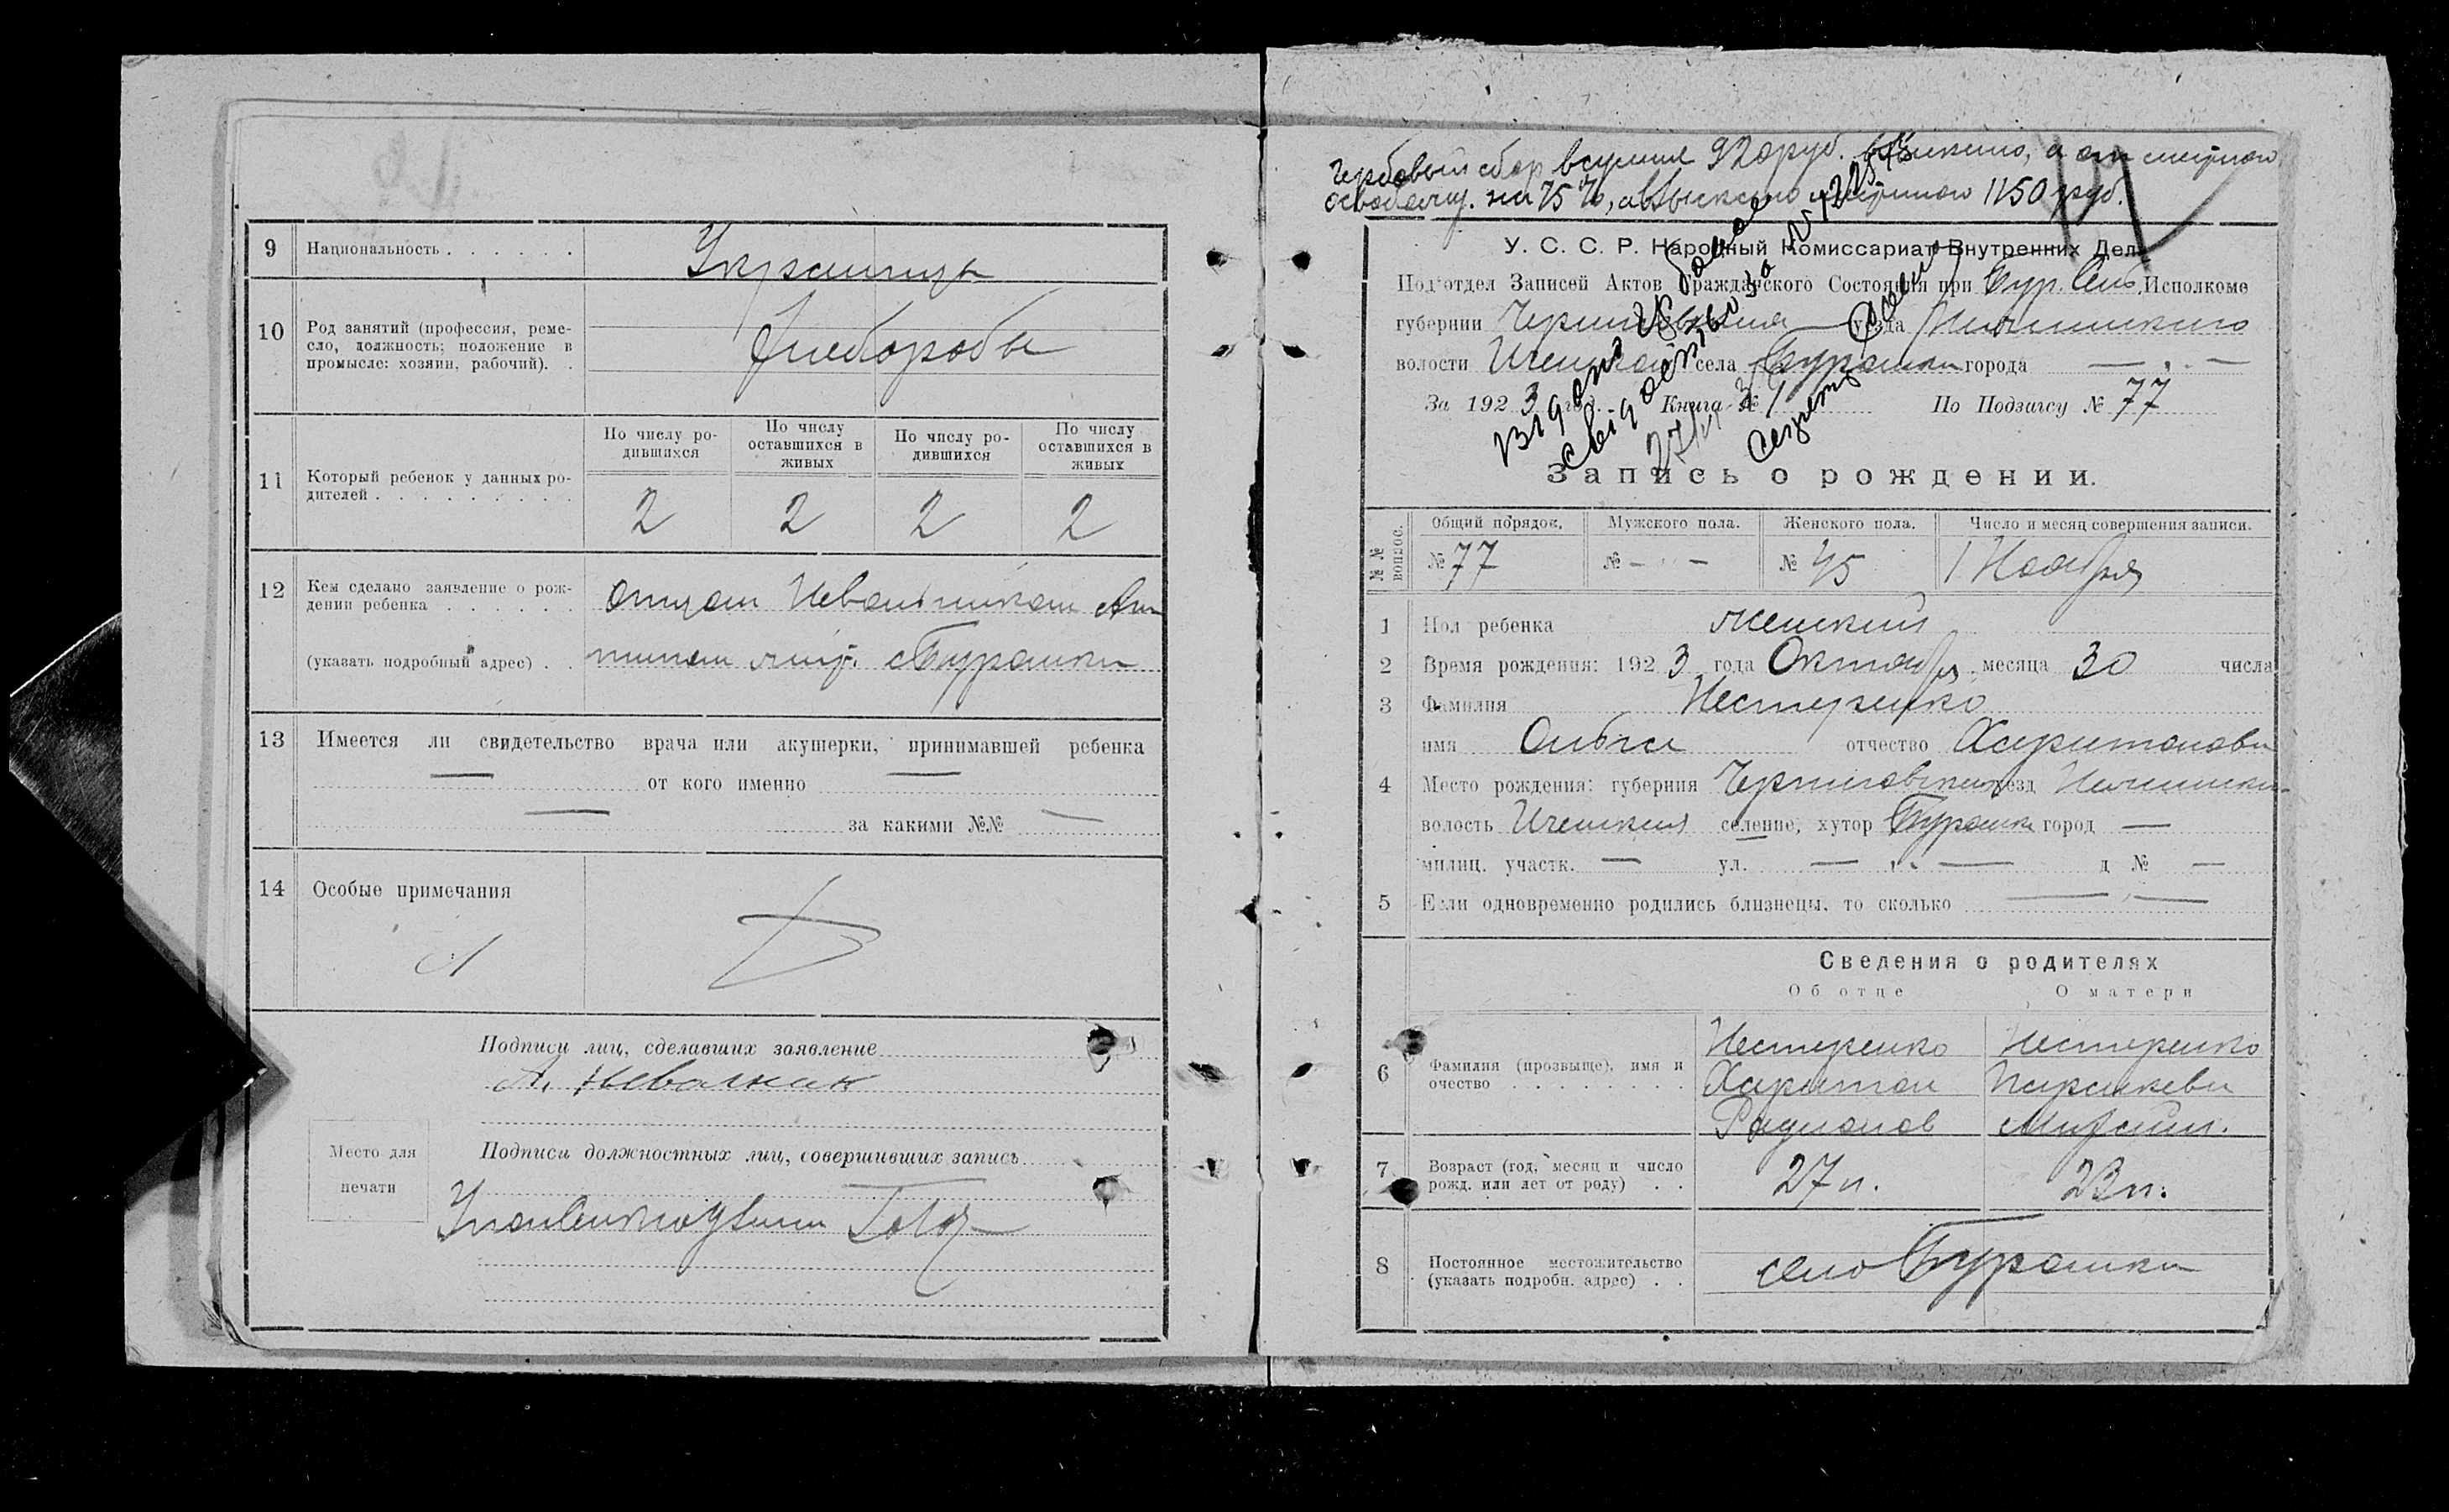 9 Национальность Украинцы
10 Род занятий (профессия, реме-
сло, должность; положение в
промысле: хозяин, рабочий). Хлеборобы
11 Который ребенок у данных ро-
дителей
По числу ро-
дившихся
По числу
оставшихся в
живых
По числу ро-
дившихся
По числу
оставшихся в
живых
2 2 2 2
12 Кем сделано заявление о рож-
дении ребенка отцом Невольником Ан
(указать подробный адрес) с Буромки
13 Имеется ли свидетельство врача или акушерки, принимавшей ребенка
— от кого именно —
— за какими №№ —
14 Особые примечания
Подписи лиц, сделавших заявление
А. Невольник
Место для
печати
Подписи должностных лиц, совершивших запись
Гербовый сбор в сумме 920 руб. взыскано, а от
освобожд. на 75%, а взыскано 1150 руб.
У. С. С. Р. Народный Комиссариат Внутренних Дел
Подотдел Записей Актов Гражданского Состояния при Бур. Сель. Исполкоме
губернии Черниговская уезда Нежинского
волости Иченской села Буромки города —
За 1923 год. Книга № 1 По Подзагсу № 77
Запись о рождении.
№№ вопрос.
Общий порядок. Мужского пола. Женского пола. Число и месяц совершения записи.
№ 77 № — № 45 1 Ноября
1 Пол ребенка женский
2 Время рождения: 1923 года Октября месяца 30 числа
3 Фамилия Нестеренко
имя Ольга отчество Харитоновна
4 Место рождения: губерния Черниговская уезд Нежинский
волость Иченская селение, хутор Буромка город —
милиц. участк. — ул. — д № —
5 Если одновременно родились близнецы, то сколько —
Сведения о родителях
Об отце О матери
6 Фамилия (прозвыще), имя и
очество
Нестеренко Нестеренко
Харитон Параскева
Родионов
7 Возраст (год, месяц и число
рожд. или лет от роду) 27 л. 23 л.
8 Постоянное местожительство
(указать подробн. адрес) село Буромка